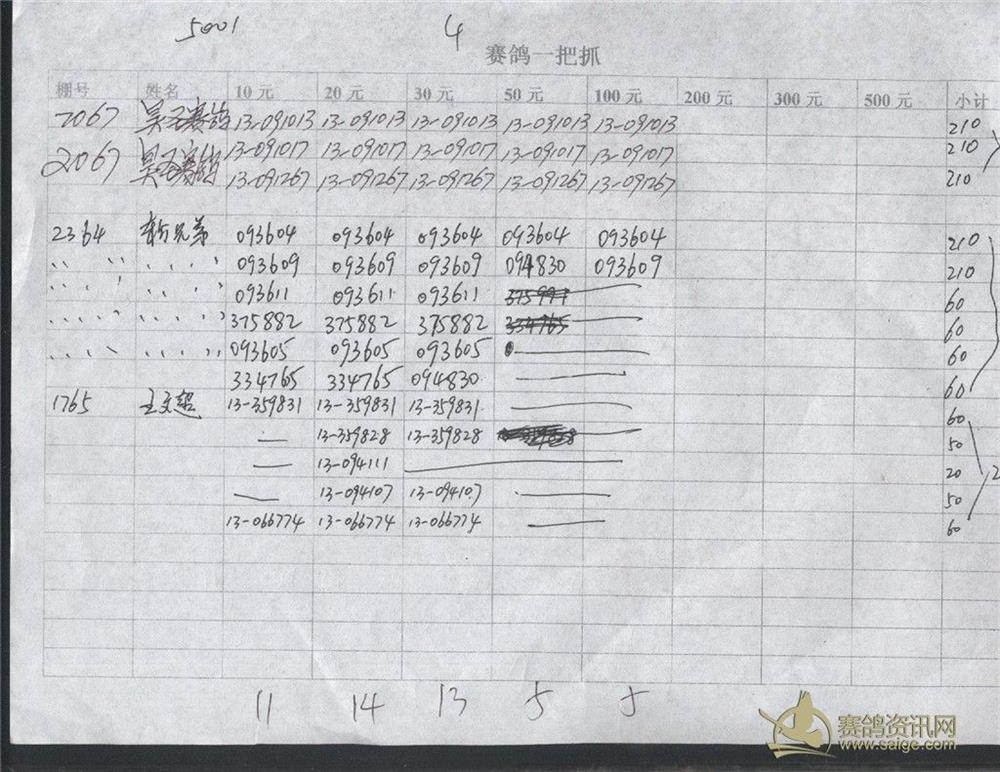 5001 4
赛鸽一把抓
棚号 姓名 10元 20元 30元 50元 100元 200元 300元 500元 小计
2067 昊天赛鸽 13-091013 13-091013 13-091013 13-091013 13-091013 210
2067 昊天赛鸽 13-091017 13-091017 13-091017 13-091017 13-091017 210
13-091267 13-091267 13-091267 13-091267 13-091267 210
2364 兄弟 093604 093604 093604 093604 093604 210
093609 093609 093609 094830 093609 210
093611 093611 093611 60
375882 375882 375882 334765 60
093605 093605 093605 60
334765 334765 094830 60
1765 王文超 13-359831 13-359831 13-359831 60
— 13-359828 13-359828 50
— 13-094111 20
— 13-094107 13-094107 50
13-066774 13-066774 13-066774 60
11 14 13 5 5
赛鸽资讯网
www.saige.com